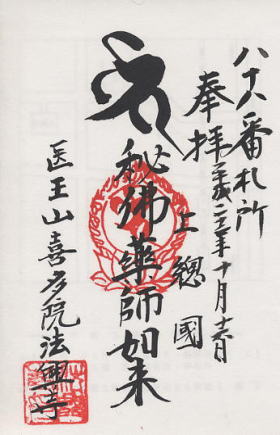 八十八番札所
奉拝
平成二十三年十月十六日
上總國
秘佛薬師如来
医王山喜多院法興寺